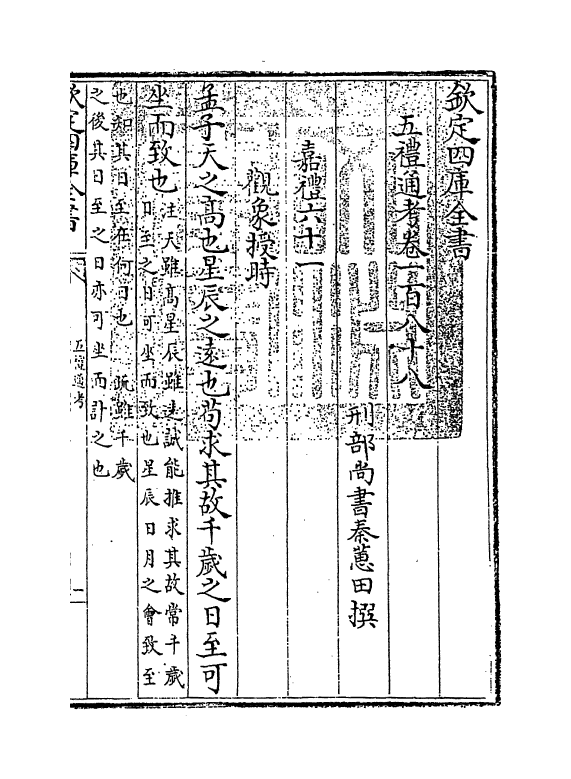 欽定四庫全書
五禮通考卷一百八十八
刑部尚書秦蕙田撰
嘉禮六十一
觀象授時
孟子天之高也星辰之遠也苟求其故千歲之日至可
坐而致也
注天雖高星辰雖遠誠能推求其故常千歲
日至之日可坐而致也星辰日月之會致至
也知其日至在何日也
既雖千歲
之後其日至之日亦可坐而計之也
欽定四庫全書
五禮通考
一